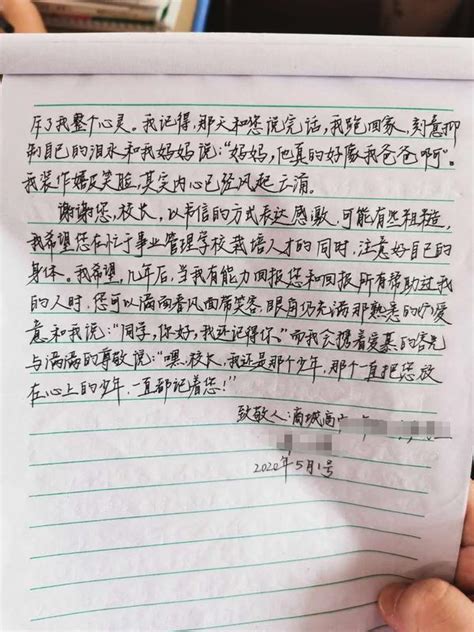 斥了我整个心灵。我记得,那天和您说完话,我跑回家,刻意抑
制自己的泪水和我妈妈说:“妈妈,他真的好像我爸爸啊”。
我装作嬉皮笑脸,其实内心已经风起云涌。
谢谢您,校长,以书信的方式表达感激,可能有些粗糙,
我希望您在忙于事业管理学校栽培人才的同时,注意好自己的
身体。我希望,几年后,当我有能力回报您和回报所有帮助过我
的人时,您可以满面春风面带笑容,眼角仍充满那熟悉的爱
意和我说:“同学,你好,我还记得你。”而我会携着爱慕的
与满满的尊敬说:“嘿,校长,我还是那个少年,那个一直把您放
在心上的少年,一直都记着您!”
致敬人:南城高
2020年5月1号